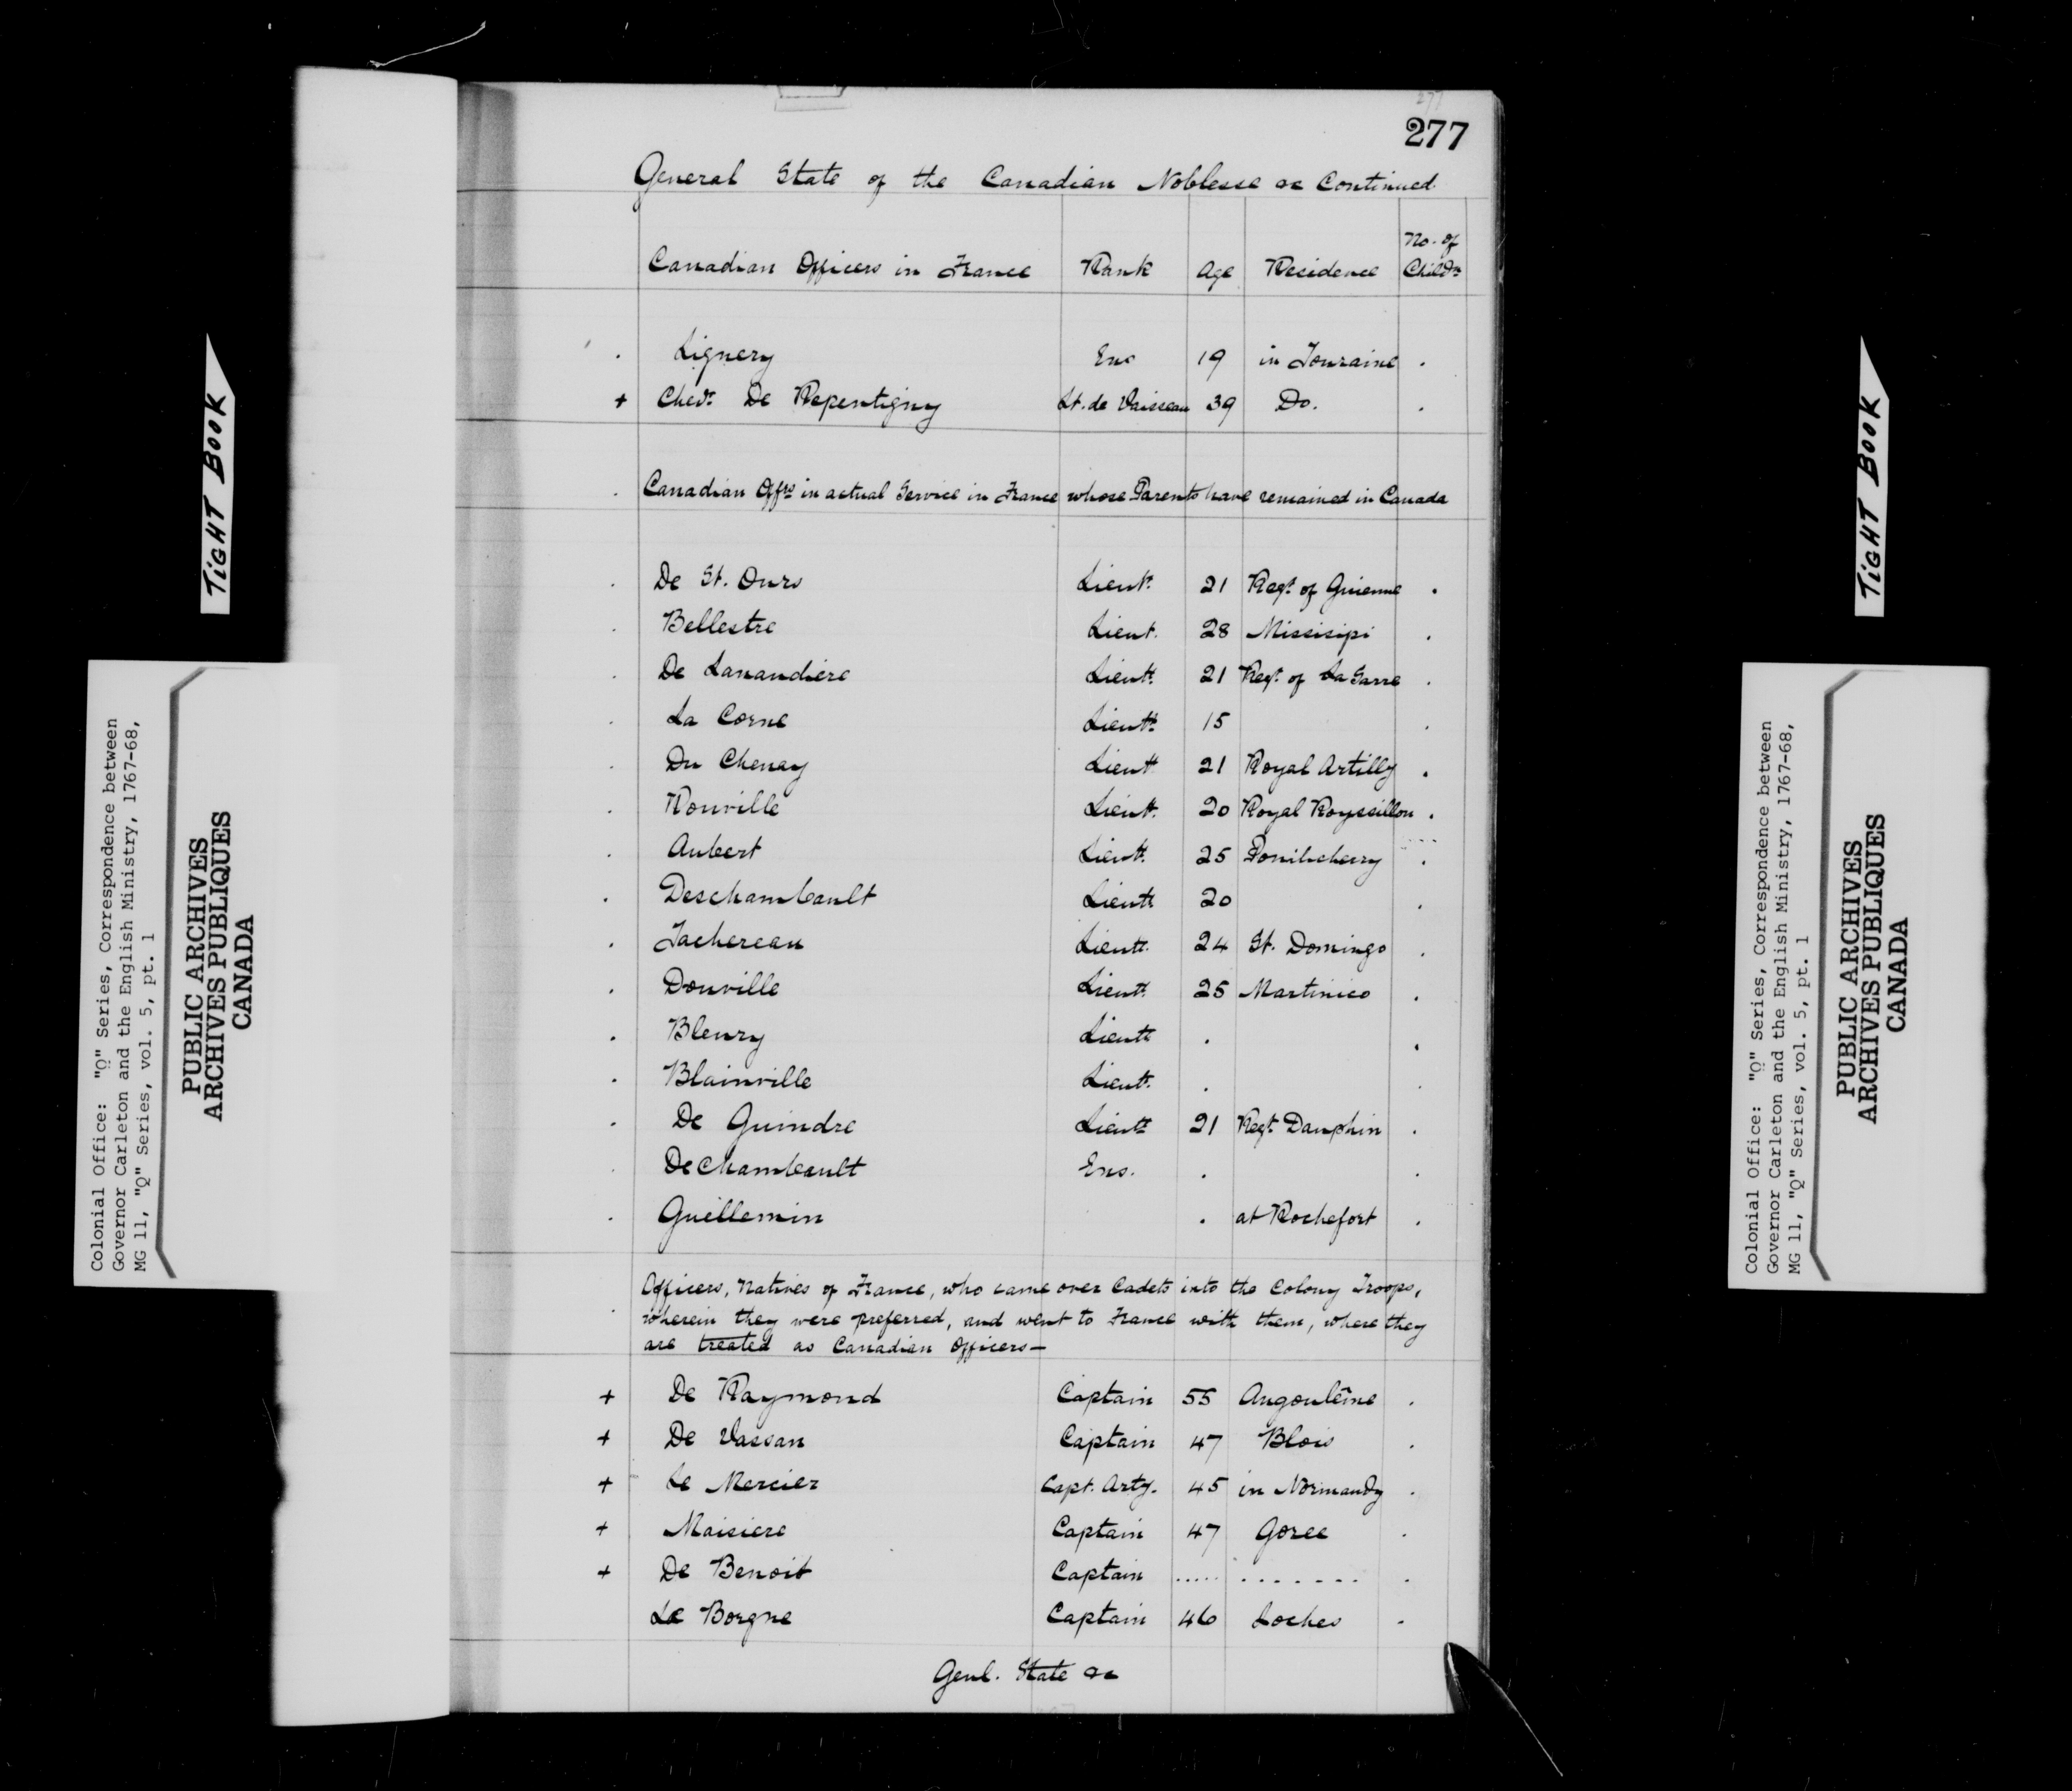 277
277
General State of the Canadian Noblesse &c Continued
Canadian Officers in France Rank Age Residence No. of Childn
. Lignery Ens 19 in Touraine .
+ Chevr. De Repentigny Lt. de Vaisseau 39 Do. .
. Canadian Offrs in actual Service in France whose Parents have remained in Canada
. De St. Ours Lieut. 21 Regt. of Guienne .
. Bellestre Lieut. 28 Missisipi .
. De Lanandiere Lieutt. 21 Regt. of La Sarre .
. La Corne Lieutt. 15 .
. Du Chenay Lieutt. 21 Royal Artilly .
. Rouville Lieutt. 20 Royal Royssillon .
. Aubert Lieutt. 25 Ponihcherry .
. Deschambault Lieutt 20 .
. Tachereau Lieutt. 24 St. Domingo .
. Douville Lieutt. 25 Martinico .
. Bleury Lieutt . .
. Blainville Lieutt. . .
. De Guindre Lieutt 21 Regt. Dauphin .
. DeChambault Ens. . .
. Guillemin . at Rochefort .
. Officers, Natives of France, who came over Cadets into the Colony Troops,
wherein they were preferred, and went to France with them, where they
are treated as Canadian Officers—
+ De Raymond Captain 55 Angoulême .
+ De Vassan Captain 47 Blois .
+ Le Mercier Capt. Arty. 45 in Normandy .
+ Maisiere Captain 47 Goree .
+ De Benoit Captain ..... ....... .
Le Borgne Captain 46 Loches .
Genl. State &c
TIGHT BOOK
Colonial Office: "Q" Series, Correspondence between
Governor Carleton and the English Ministry, 1767-68,
MG 11, "Q" Series, vol. 5, pt. 1
PUBLIC ARCHIVES
ARCHIVES PUBLIQUES
CANADA
TIGHT BOOK
Colonial Office: "Q" Series, Correspondence between
Governor Carleton and the English Ministry, 1767-68,
MG 11, "Q" Series, vol. 5, pt. 1
PUBLIC ARCHIVES
ARCHIVES PUBLIQUES
CANADA